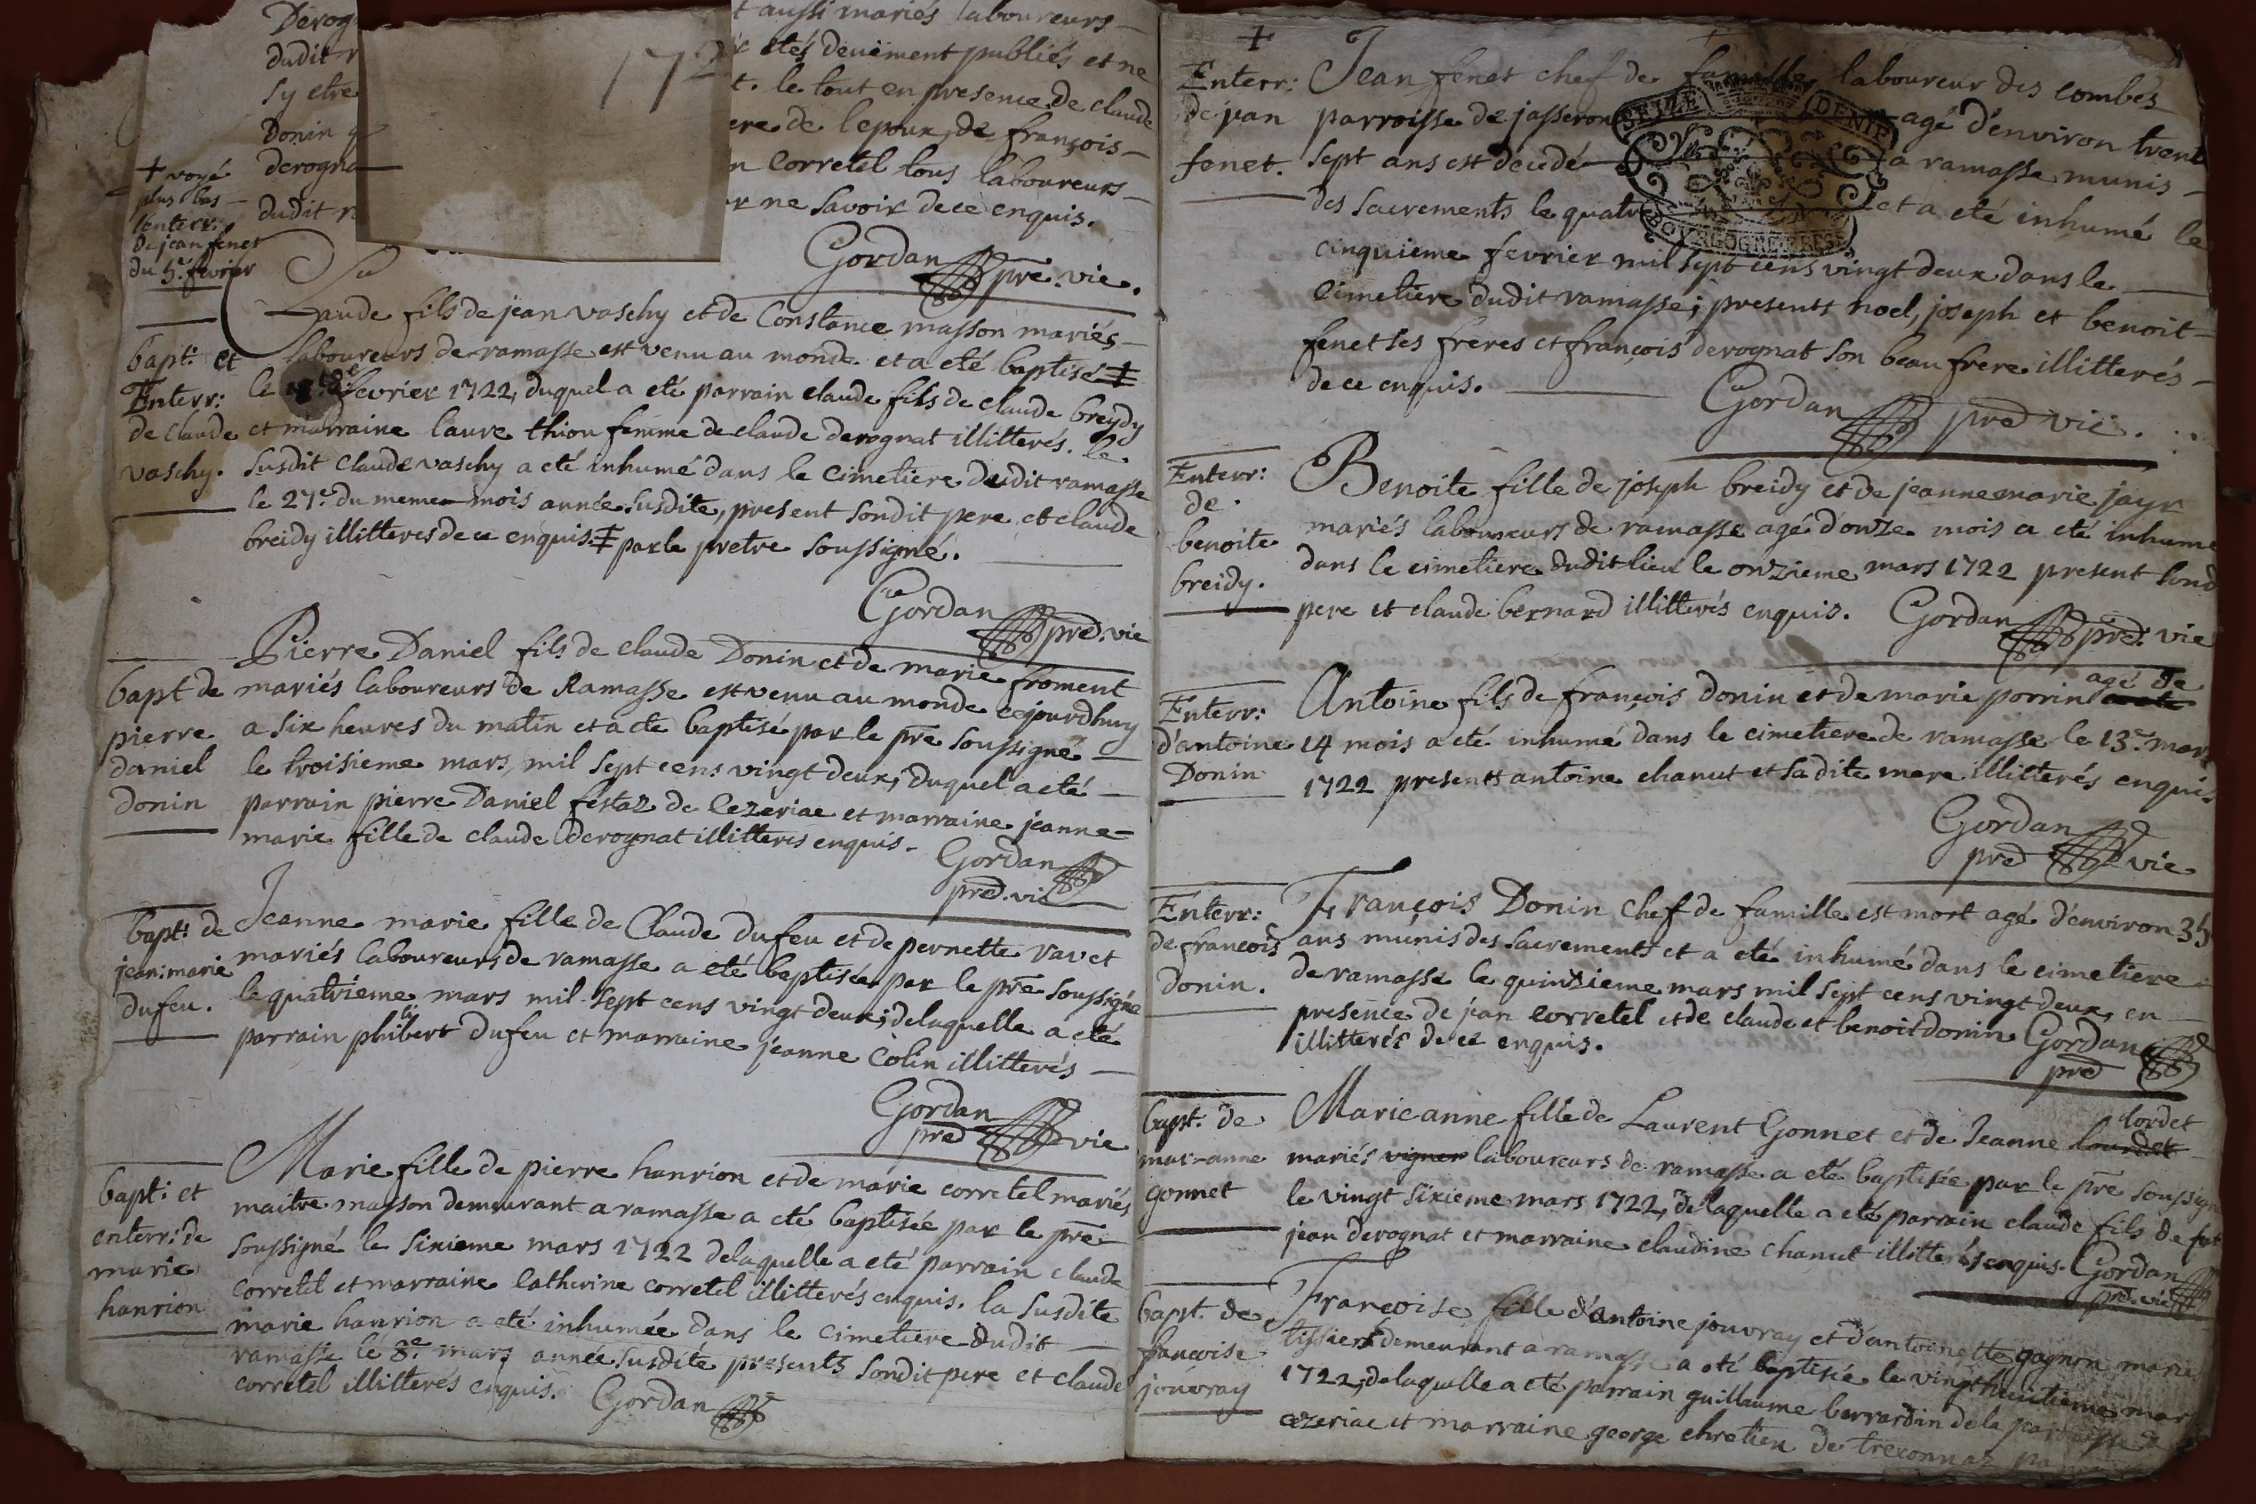 Derog
dudit
sy etre
Donin
derogna
dudit
172
t aussi mariés laboureurs
etés deüement publiés et ne
t. le tout en presence de claude
ere de lepoux, de françois
corretel tous laboureurs
ne savoir de ce enquis.
Gordan pre. vic.
+ voyé
plus bas
lenterr:
de jean fenet
du 5e. fevrier
bapt: et
Enterr:
de claude
vaschy.
Claude fils de jean vaschy et de Constance masson mariés
laboureurs de ramasse est venu au monde et a eté baptisé ‡
le 18e. fevrier 1722, duquel a eté parrain claude fils de claude breydy
et marraine laure thion femme de claude derognat illitterés. le
susdit claude vaschy a eté inhumé dans le cimetiere dudit ramasse
le 27e. du meme mois année susdite, present sondit pere et claude
breidy illitteres de ce enquis. ‡ par le pretre soussigné.
Gordan pred. vic
bapt de
pierre
daniel
donin
Pierre Daniel fils de claude Donin et de marie froment
mariés laboureurs de Ramasse est venu au monde cejourdhuy
a six heures du matin et a ete baptisé par le pre soussigné
le troisieme mars mil sept cens vingt deux; duquel a eté
parrain pierre Daniel festaz de Cezeriac et marraine jeanne
marie fille de claude derognat illitteres enquis. Gordan
pred. vic
bapt: de
jean: marie
dufeu.
Jeanne marie fille de Claude dufeu et de pernette ravet
mariés laboureurs de ramasse a eté baptisée par le pre soussigné
le quatrieme mars mil sept cens vingt deux; delaquelle a eté
parrain philibert dufeu et marraine jeanne Colin illitterés
Gordan
pred vic
bapt: et
enterr: de
marie
hanrion
Marie fille de pierre hanrion et de marie corretel mariés
maitre masson demeurant a ramasse a eté baptisée par le pre
soussigné le sixieme mars 1722 delaquelle a eté parrain claude
corretel et marraine Catherine corretel illitterés enquis. la susdite
marie hanrion a eté inhumée dans le cimetiere dudit
ramasse le 8e. mars année susdite presents sondit pere et claude
corretel illitterés enquis. Gordan
+
Enterr:
de jean
fenet.
SEIZE DENIE
BOURGOGNE BRESSE
Jean fenet chef de famille laboureur des combes
parroisse de jasseron agé d'environ trent
sept ans est decedé a ramasse munis
des sacrements le quatre et a eté inhumé le
cinquieme fevrier mil sept cens vingt deux dans le
cimetiere dudit ramasse; presents noel, joseph et benoit
fenet ses freres et françois derognat son beau frere illitterés
de ce enquis.
Gordan pred vic.
Enterr:
de
benoite
breidy.
Benoite fille de joseph breidy et de jeanne marie jayr
mariés laboureurs de ramasse agé d'onze mois a eté inhume
dans le cimetiere dudit lieu le onzieme mars 1722 present sond
pere et claude bernard illitterés enquis. Gordan pred. vic
Enterr:
d'antoine
Donin
Antoine fils de françois donin et de marie porrin agé de
14 mois a eté inhumé dans le cimetiere de ramasse le 13e. mar
1722 presents antoine chanut et sadite mere illitterés enquis
Gordan
pred vic
Enterr:
de francois
donin.
François Donin chef de famille est mort agé d'environ 35
ans munis des sacrements et a eté inhumé dans le cimetiere
de ramasse le quinzieme mars mil sept cens vingt deux, en
presence de jean corretel et de claude et benoit donin Gordan
illitterés de ce enquis.
pred
bapt: de
mar-anne
gonnet
Marie anne fille de Laurent Gonnet et de Jeanne lourdet lordet
mariés vigner laboureurs de ramasse a eté baptisée par le pre soussign
le vingt sixieme mars 1722, delaquelle a eté parrain claude fils de fut
jean derognat et marraine claudine chanut illitterés enquis. Gordan
pred. vic
bapt: de
francoise
jouvray
Françoise fille d'antoine jouvray et d'antoinette gagnon marie
tissiers demeurant a ramasse a eté baptisée le vingt huitieme mar
1722; delaquelle a eté parrain guillaume berrardin de la parroisse de
cezeriac et marraine george chretien de treconnaz pa